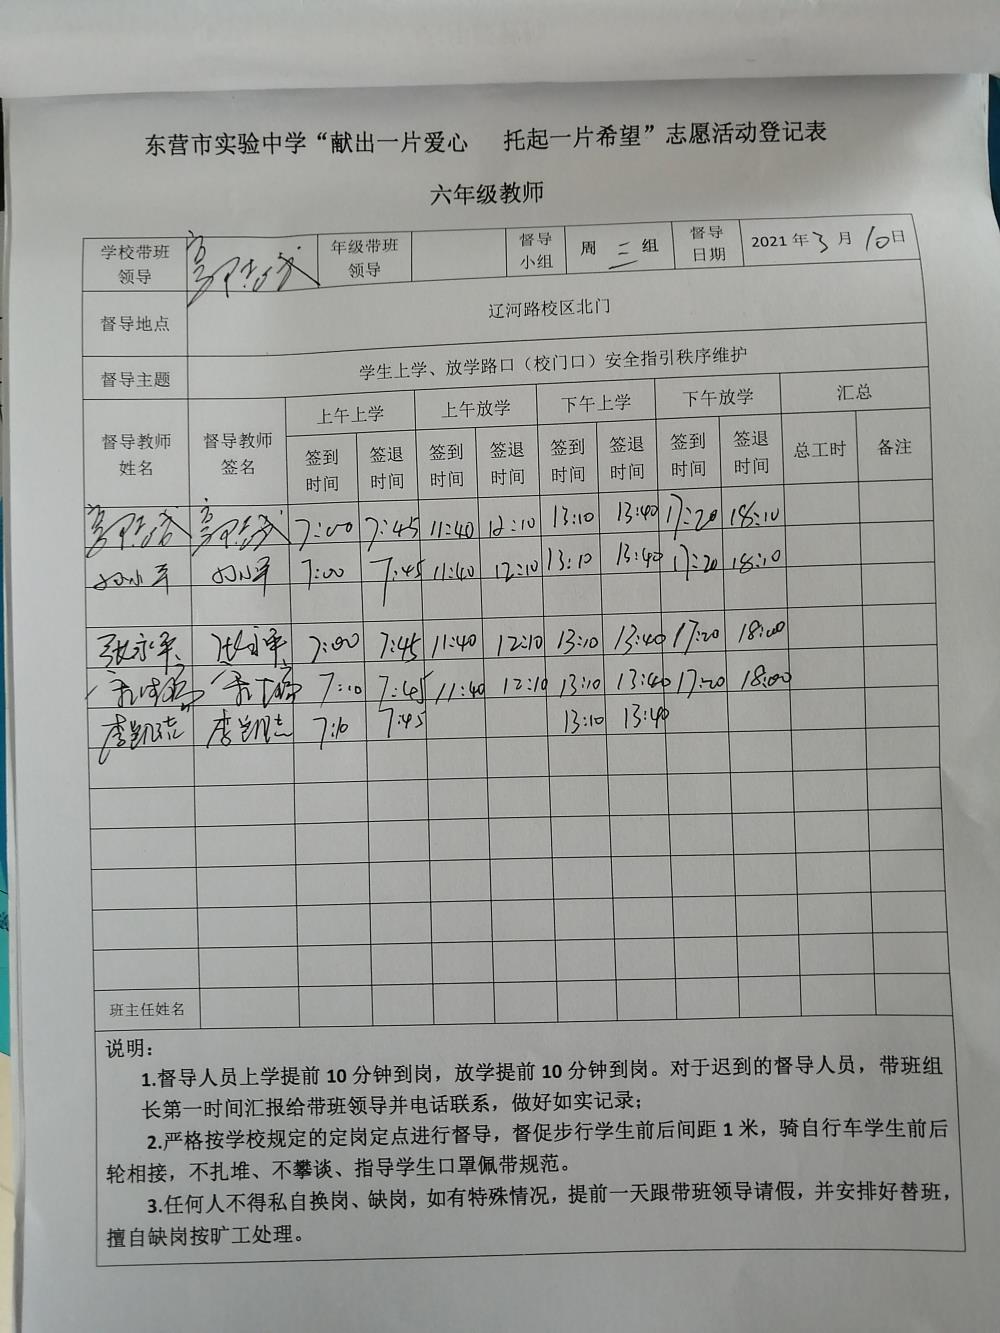 东营市实验中学“献出一片爱心 托起一片希望”志愿活动登记表
六年级教师
学校带班领导 年级带班领导 督导小组 周三组 督导日期 2021年3月10日
督导地点 辽河路校区北门
督导主题 学生上学、放学路口（校门口）安全指引秩序维护
督导教师姓名 督导教师签名 上午上学 上午放学 下午上学 下午放学 汇总
签到时间 签退时间 签到时间 签退时间 签到时间 签退时间 签到时间 签退时间 总工时 备注
7:00 7:45 11:40 12:10 13:10 13:40 17:20 18:10
7:00 7:45 11:40 12:10 13:10 13:40 17:20 18:10
张永军 张永军 7:00 7:45 11:40 12:10 13:10 13:40 17:20 18:00
7:10 7:45 11:40 12:10 13:10 13:40 17:20 18:00
李凯志 李凯志 7:10 7:45 13:10 13:40
班主任姓名
说明：
1.督导人员上学提前 10 分钟到岗，放学提前 10 分钟到岗。对于迟到的督导人员，带班组
长第一时间汇报给带班领导并电话联系，做好如实记录；
2.严格按学校规定的定岗定点进行督导，督促步行学生前后间距 1 米，骑自行车学生前后
轮相接，不扎堆、不攀谈、指导学生口罩佩带规范。
3.任何人不得私自换岗、缺岗，如有特殊情况，提前一天跟带班领导请假，并安排好替班，
擅自缺岗按旷工处理。